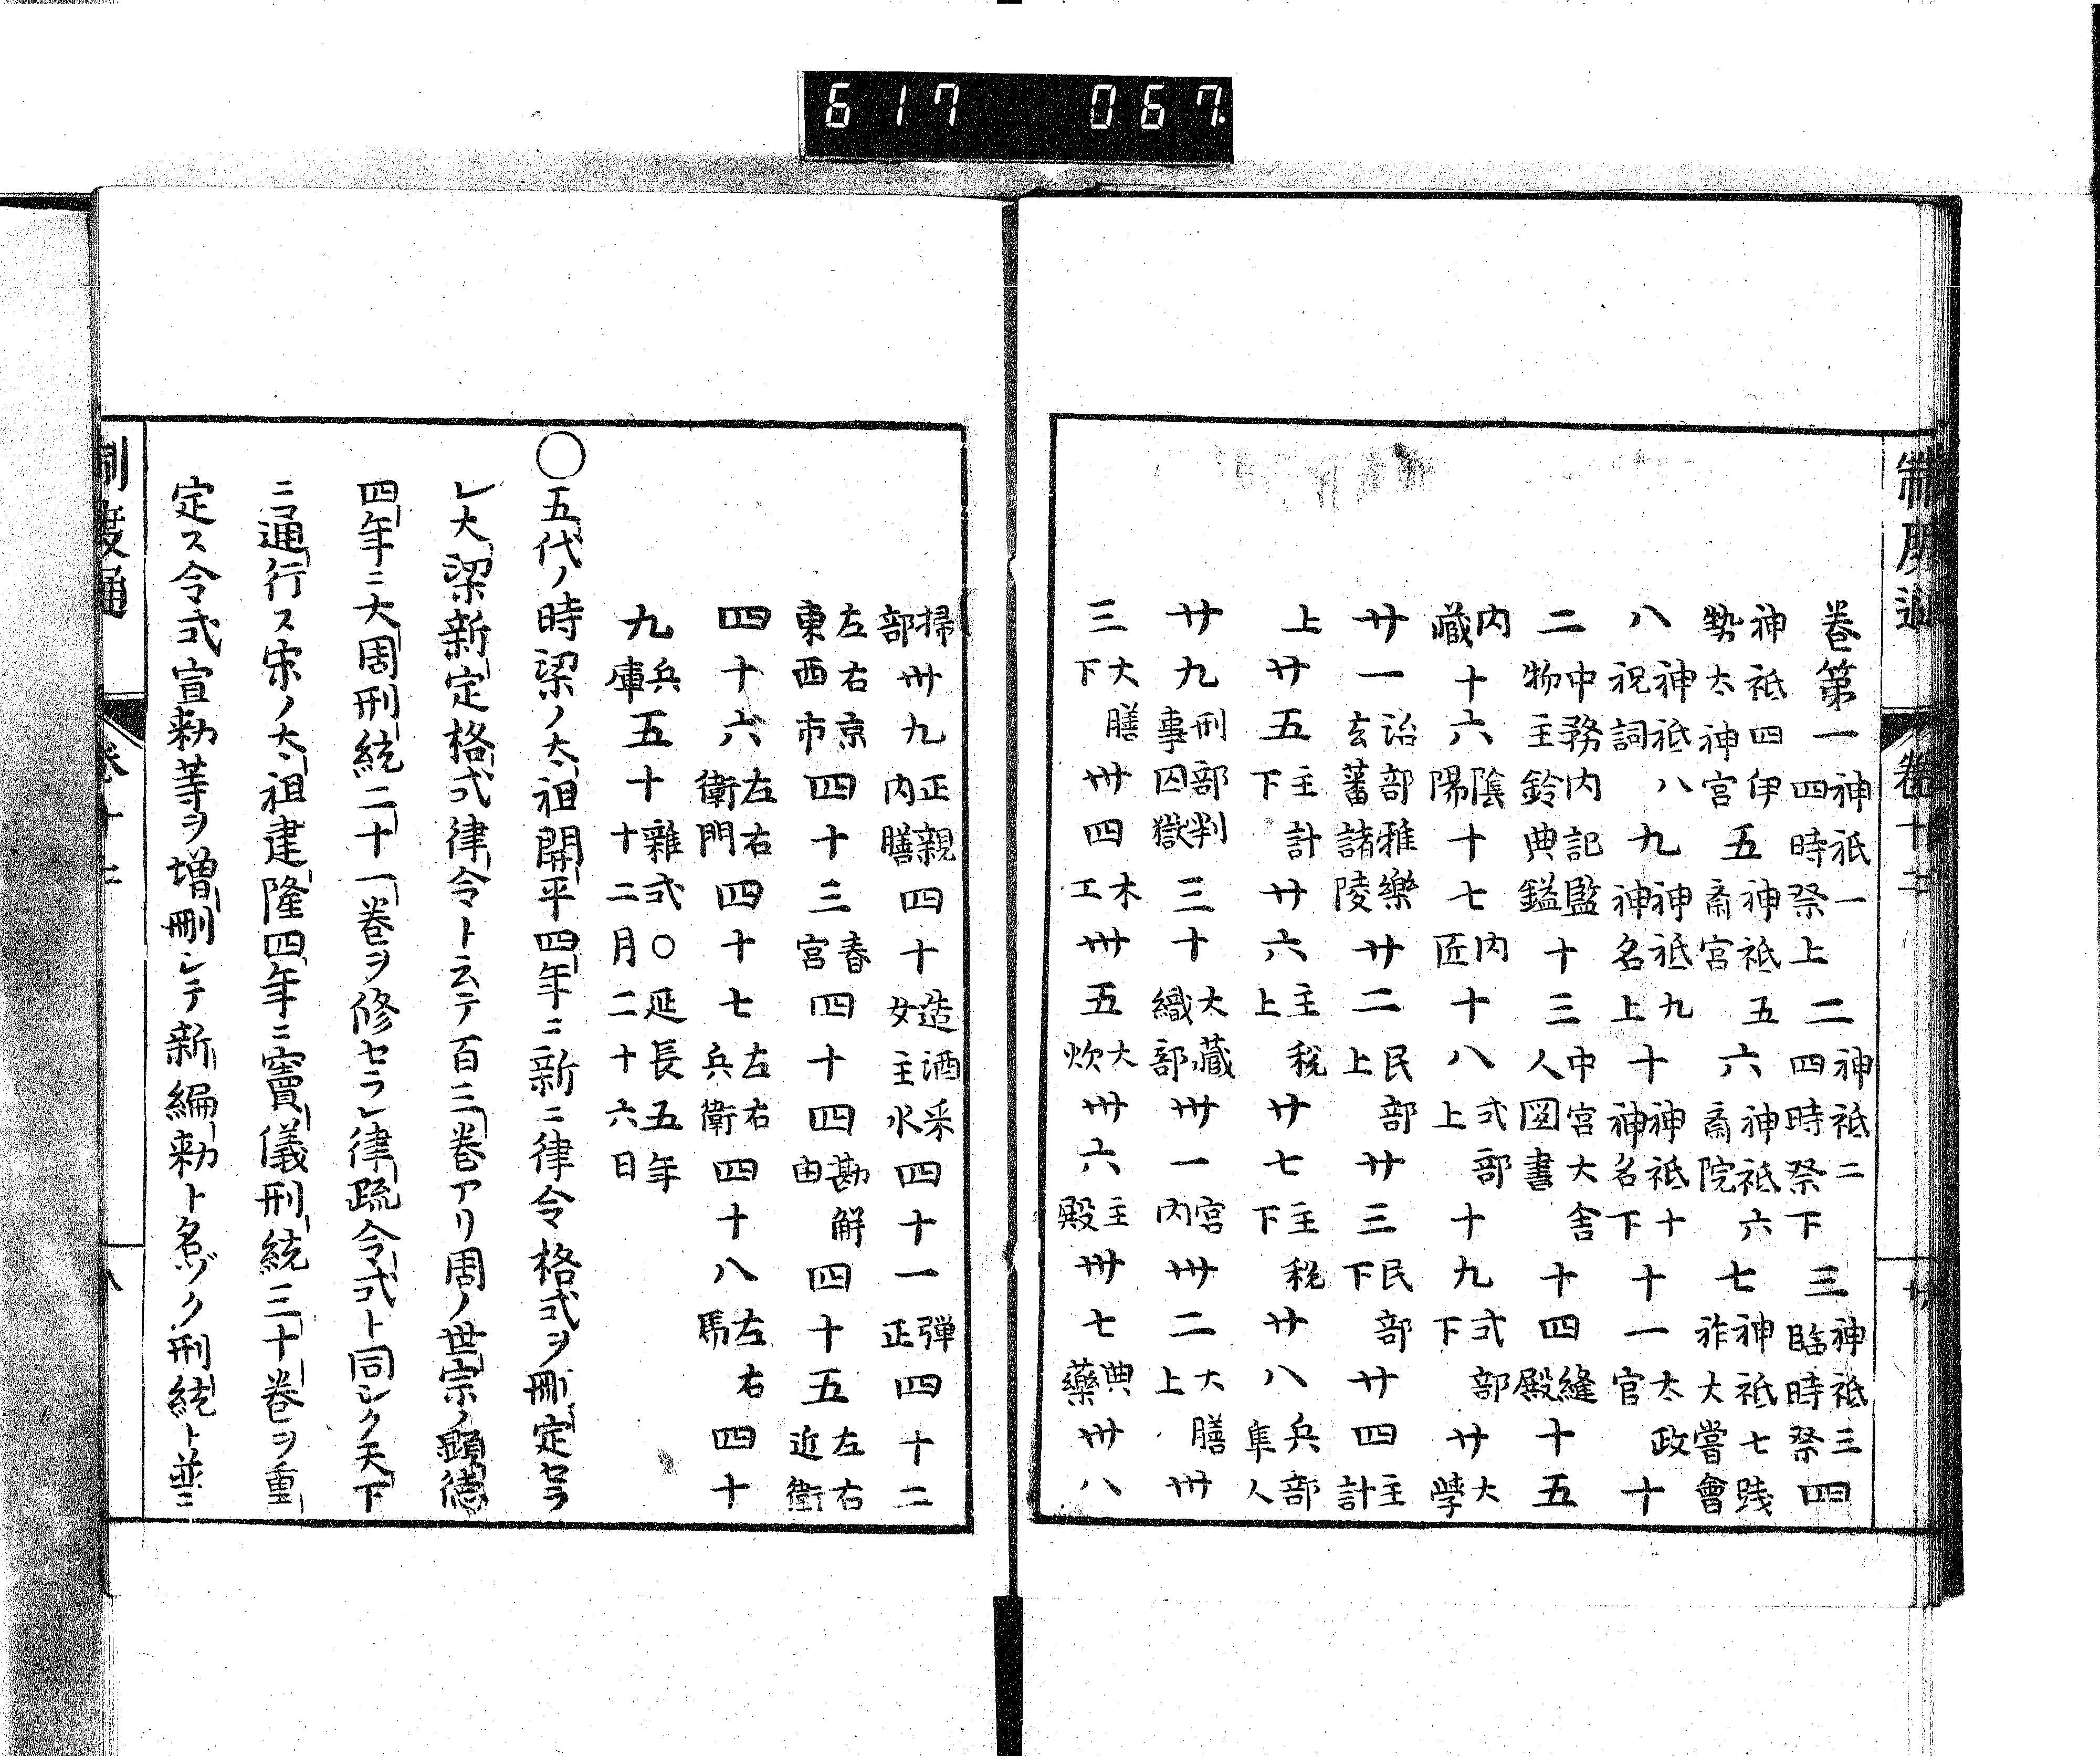 制度通
巻第一神祇一四時祭上二神祇二四時祭下三神祇三臨時祭四
神祇四伊勢太神宮五神祇五斎宮六神祇六斎院七神祇七践祚大嘗會
八神祇八祝詞九神祇九神名上十神祇十神名下十一太政官十
二中務内記監物主鈴典鎰十三中宮大舎人図書十四縫殿十五
内藏十六陰陽十七内匠十八式部上十九式部下廿大學
廿一治部雅樂玄蕃諸陵廿二民部上廿三民部下廿四主計
上廿五主計下廿六主税上廿七主税下廿八兵部隼人
廿九刑部判事囚獄三十大藏織部卅一宮内卅二大膳上卅
三大膳下卅四木工卅五大炊卅六主殿卅七典藥卅八
掃部卅九正親内膳四十造酒采女主水四十一弾正四十二
左右京東西市四十三春宮四十四勘解由四十五左右近衛
四十六左右衛門四十七左右兵衛四十八左右馬四十
九兵庫五十雜式○延長五年十二月二十六日
○五代ノ時梁ノ太祖開平四年ニ新ニ律令格式ヲ刪定セラ
レ大梁新定格式律令ト云テ百三巻アリ周ノ世宗ノ顕徳
四年ニ大周刑統二十一巻ヲ修セラレ律疏令式ト同シク天下
ニ通行ス宋ノ太祖建隆四年ニ竇儀刑統三十巻ヲ重
定ス令式宣勅等ヲ増刪シテ新編勅ト名ヅク刑統ト並ニ
制度通
617 067